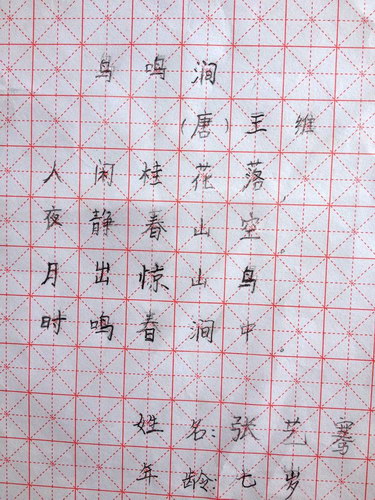 鸟鸣涧
（唐）王维
人闲桂花落，
夜静春山空。
月出惊山鸟
时鸣春涧中。
姓名：张艺骞
年龄：七岁